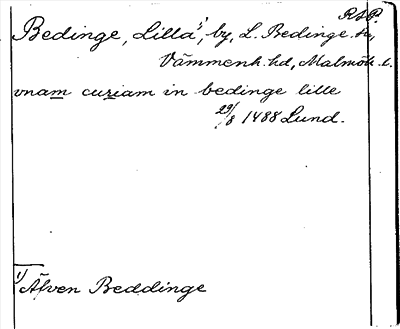 RAP.
Bedinge, Lilla¹⁾, by, L. Bedinge sn,
Vämmenh. hd, Malmöh. l.
vnam curiam in bedinge lille
29/8 1488 Lund.
1) Äfven Beddinge